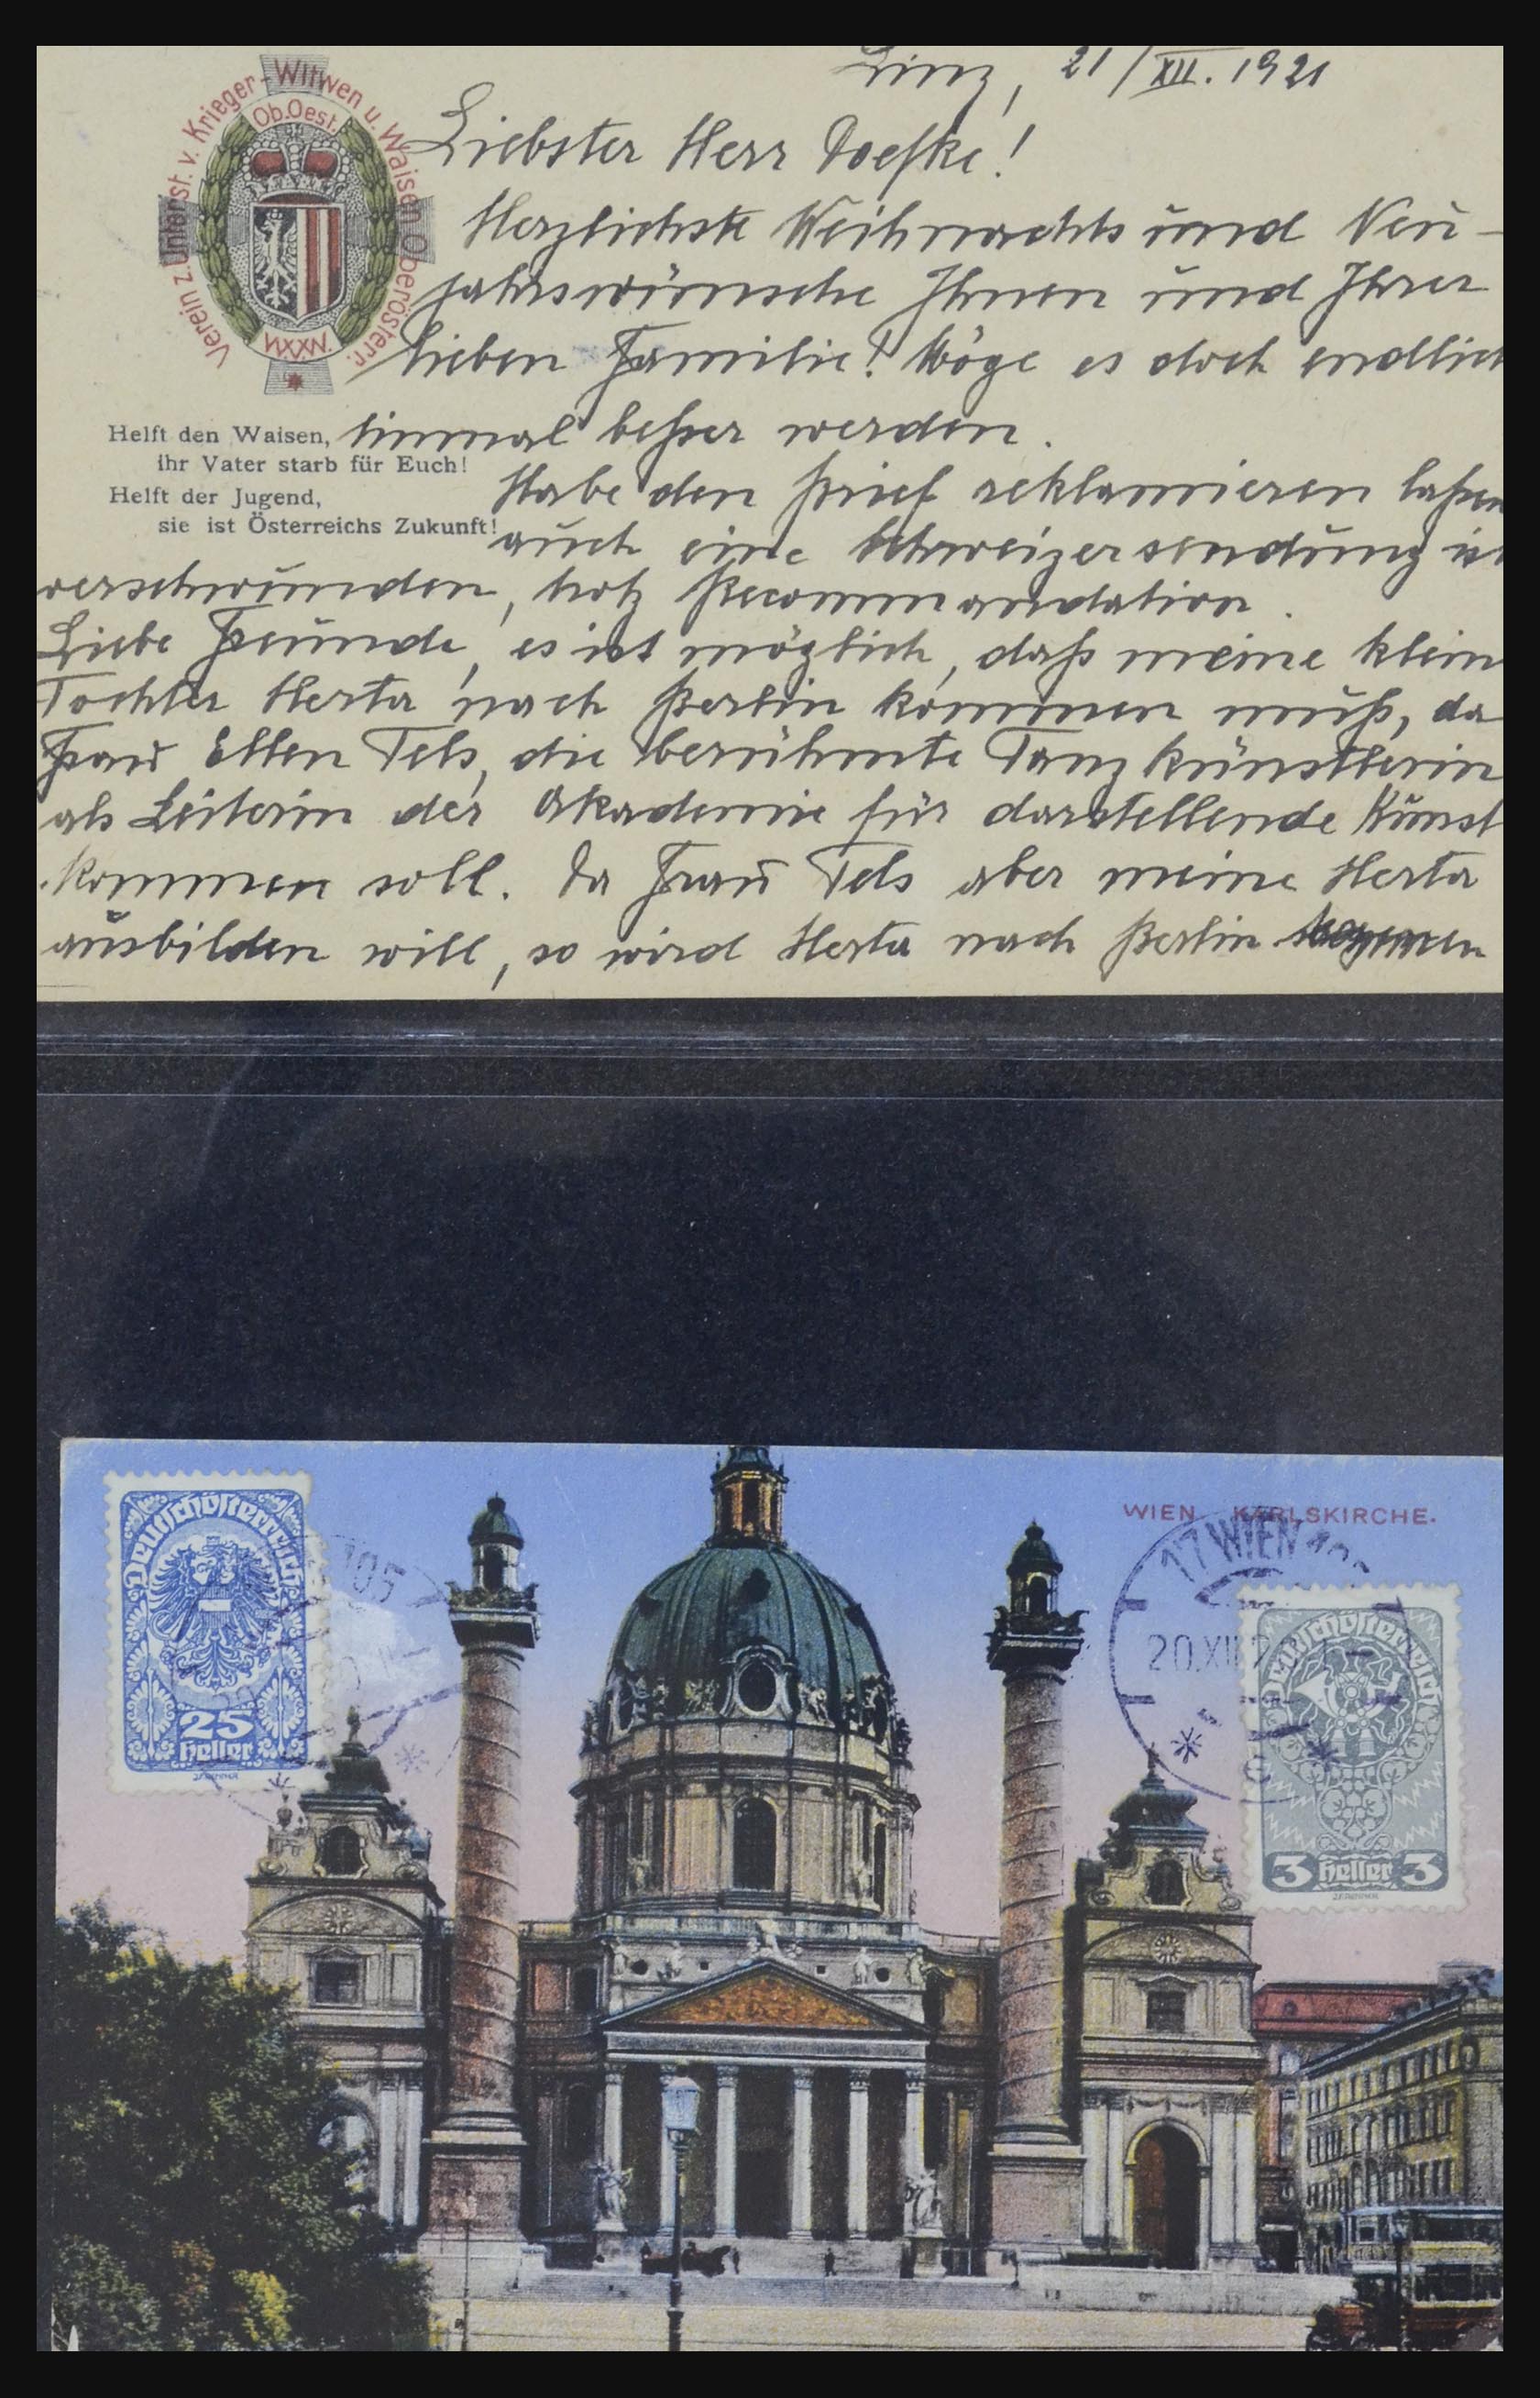 Linz, 21/XII. 1921
Verein z. Unterst. v. Krieger-Witwen u. Waisen Oberösterr.
Ob.Oest.
Liebster Herr Doefke!
Herzlichste Weihnachts und Neu-
jahrswünsche Ihnen und Ihrer
lieben Familie! Möge es doch endlich
einmal besser werden.
Helft den Waisen,
ihr Vater starb für Euch!
Helft der Jugend,
sie ist Österreichs Zukunft!
Habe den Brief reklamieren laßen
auch eine Schweizersendung ist
verschwunden, trotz Recommandation.
Liebe Freunde, es ist möglich, daß meine klein
Tochter Herta nach Berlin kommen muß, da
Frau Ellen Tels, die berühmte Tanzkünstlerin
als Leiterin der Akademie für darstellende Kunst
kommen soll. Da Frau Tels aber meine Herta
ausbilden will, so wird Herta nach Berlin kommen
WIEN KARLSKIRCHE.
Deutschösterreich
25
Heller
105
17 WIEN
20.XII
Deutschösterreich
3 Heller 3